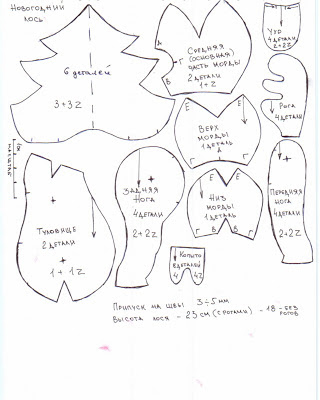 Новогодний
лось
6 деталей
3+3Z
Средняя
(основная)
часть морды
2 детали
1+Z
Г
В
Ухо
4 детали
2+2Z
Рога
4 детали
Е
Е
Верх
морды
1 деталь
А
Г
Г
Туловище
2 детали
1+1Z
Задняя
нога
4 детали
2+2Z
Е
Е
Низ
морды
1 деталь
Г
В
В
Г
Передняя
нога
4 детали
2+2Z
Копыто
8 деталей
4 4Z
Припуск на швы 3÷5 мм
Высота лося - 23 см (с рогами) - 18 - без
рогов